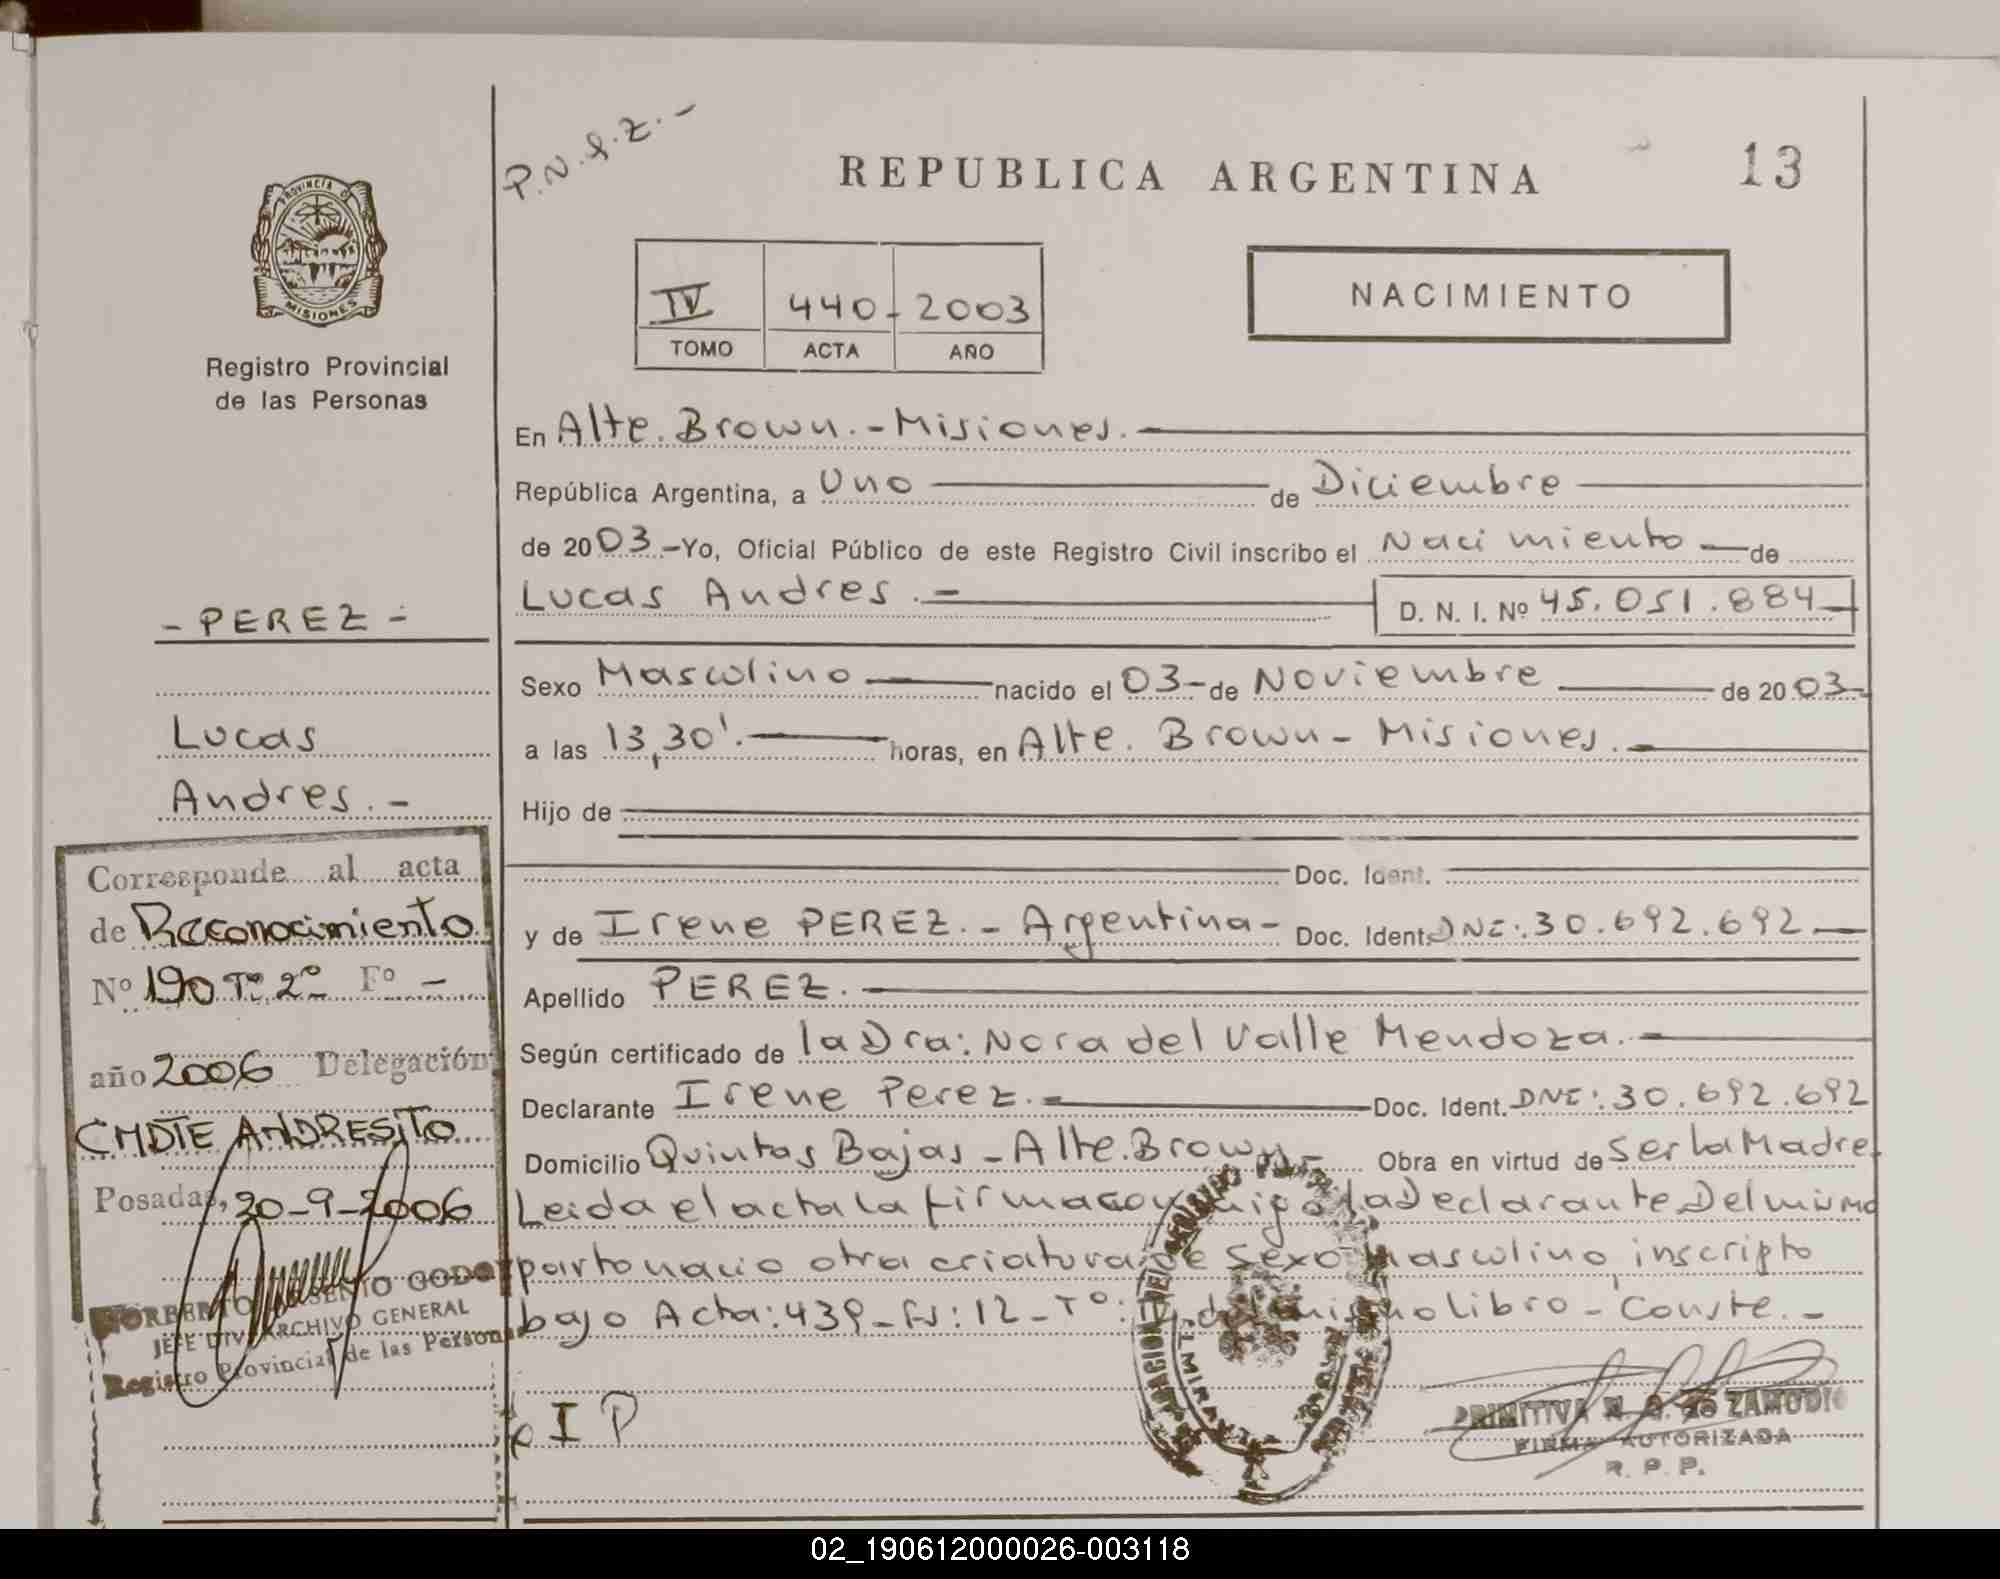 P.N.S.Z.-
REPUBLICA ARGENTINA
13
PROVINCIA D
MISIONES
Registro Provincial
de las Personas
IV 440- 2003
TOMO ACTA AÑO
NACIMIENTO
En Alte. Brown.-Misiones.
República Argentina, a Uno de Diciembre
de 2003.-Yo, Oficial Público de este Registro Civil inscribo el Nacimiento de
Lucas Andres.- D. N. I. Nº 45.051.884
Sexo Masculino nacido el 03-de Noviembre de 2003-
a las 13,30'. horas, en Alte. Brown-Misiones.-
Hijo de
Doc. Ident.
y de Irene PEREZ.-Argentina- Doc. Ident. DNI:.30.692.692
Apellido PEREZ.
Según certificado de la Dra: Nora del Valle Mendoza.-
Declarante Irene Perez.- Doc. Ident. DNI: 30.692.692
Domicilio Quintas Bajas-Alte.Brown- Obra en virtud de Ser la Madre
Leida el acta la firma conmigo la Declarante Del mismo
parto nacio otra criatura de sexo Masculino, inscripto
bajo Acta:439-Fs:12-Tº: del mismo libro-Conste.-
I P
PRIMITIVA N. G. de ZAMUDIO
FIRMA AUTORIZADA
R. P. P.
- PEREZ -
Lucas
Andres.-
Corresponde al acta
de Reconocimiento
Nº 190 Tº 2º Fº -
año 2006 Delegación
CMDTE ANDRESITO
Posadas, 20-9-2006
NORBERTO ARSENIO GODOY
JEFE DIV. ARCHIVO GENERAL
Registro Provincial de las Personas
02_190612000026-003118